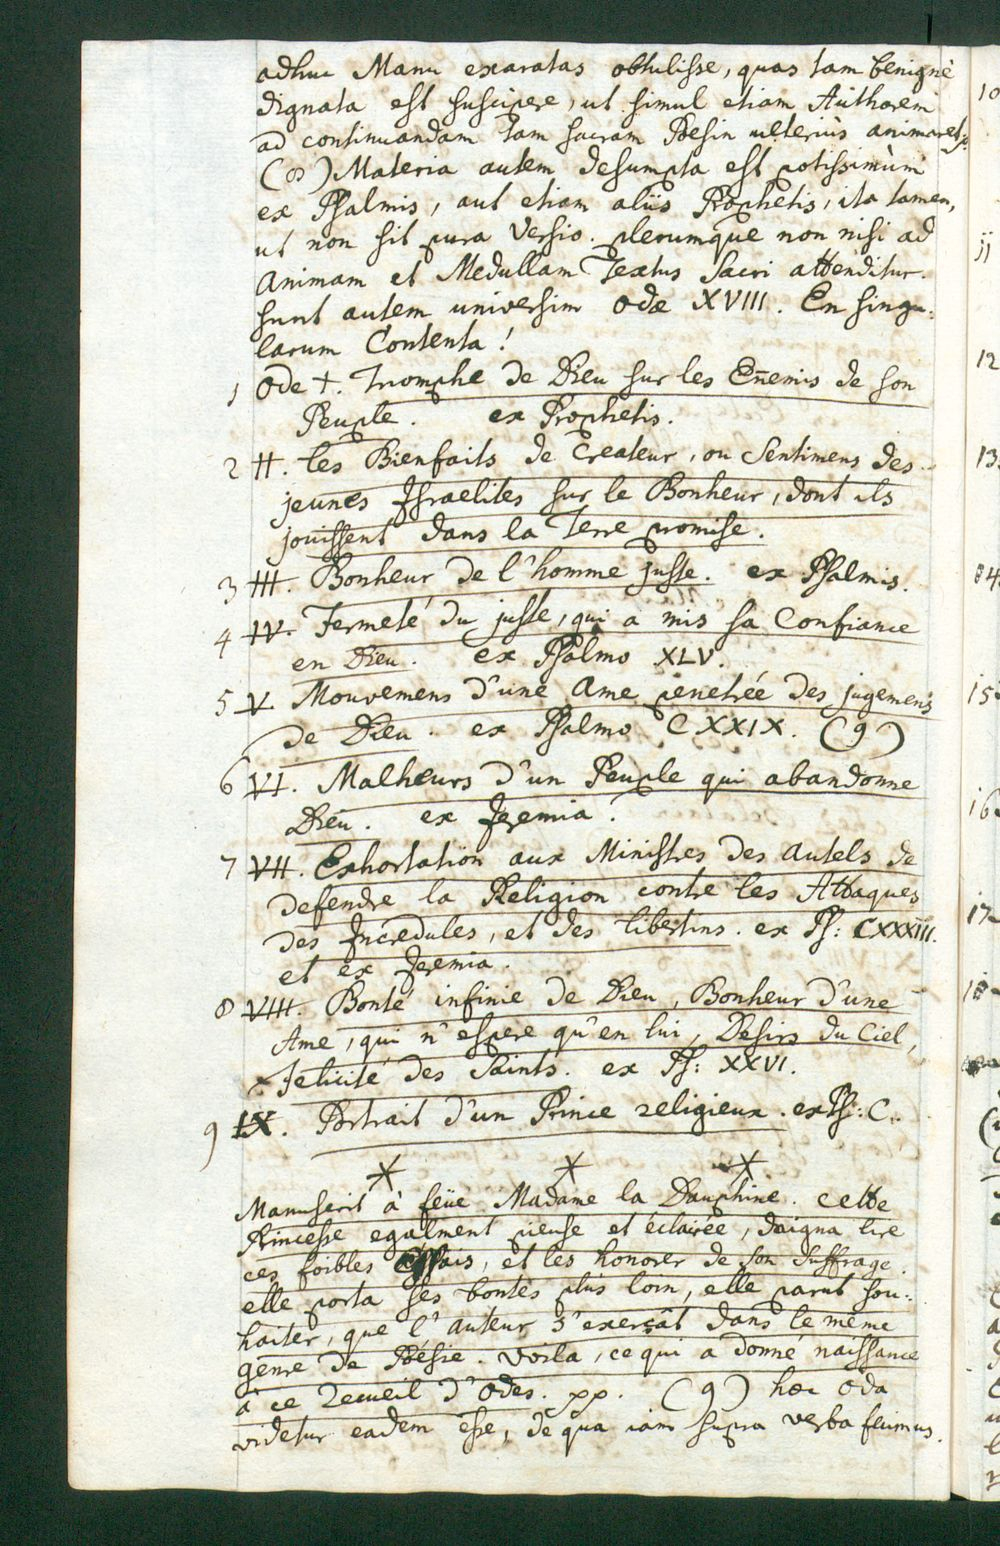 adhuc Manu exaratas obtulisse, quas tam benignè
dignata est suscipere, ut simul etiam Authorem
ad continuandam tam sacram Poesin ulteriùs animaret.
(∞) Materia autem desumpta est potissimùm
ex Psalmis, aut etiam aliis Prophetis, ita tamen,
ut non sit pura Versio. plerumque non nisi ad
Animam et Medullam Textus Sacri attenditur.
sunt autem universim Odæ XVIII. En singu:
larum Contenta!
1 Ode I. Triomphe de Dieu sur les Eñemis de son
Peuple. ex Prophetis.
2 II. les Bienfaits de Createur, ou Sentimens des
jeunes Israelites sur le Bonheur, dont ils
jouissent dans la Terre promise.
3 III. Bonheur de l'homme juste. ex Psalmis.
4 IV. Fermeté du juste, qui a mis sa Confiance
en Dieu. ex Psalmo XLV.
5 V. Mouvemens d'une Ame penetrée des jugemens
de Dieu. ex Psalmo CXXIX. (9)
6 VI. Malheurs d'un Peuple qui abandonne
Dieu. ex Jeremia.
7 VII. Exhortation aux Ministres des Autels de
defendre la Religion contre les Attaques
des Incredules, et des libertins. ex Ps: CXXXIII.
et ex Jeremia.
8 VIII. Bonté infinie de Dieu, Bonheur d'une
Ame, qui n'espere qu'en lui, Desirs du Ciel,
x felicité des Saints. ex Ps: XXVI.
9 IX. Portrait d'un Prince religieux. ex Ps: C.
Manuscrit à feüe Madame la Dauphine. Cette
Princesse egalment pieuse et éclairée, daigna lire
ces foibles Essais, et les honorer de son Suffrage.
elle porta ses bontés plus loin, elle parut sou:
haiter, que l'auteur s'exerçât dans le même
genre de Poésie. voila, ce qui a donné naissance
à ce Recueil d'Odes. pp. (9) hæc Oda
videtur eadem esse, de qua iam supra verba fecimus.